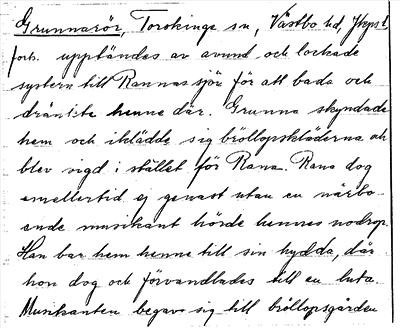 Grunnarör, Torskinge sn, Västbo hd,
forts. upptändes av avund och lockade
systern till Rannas sjön för att bada och
dränkte henne där. Grunna skyndade
hem och iklädde sig bröllopskläderna och
blev vigd i stället för Rana. Rana dog
emellertid ej genast utan en närbo-
ende musikant hörde hennes nödrop.
Han bar hem henne till sin hydda, där
hon dog och förvandlades till en luta.
Musikanten begav sig till bröllopsgården